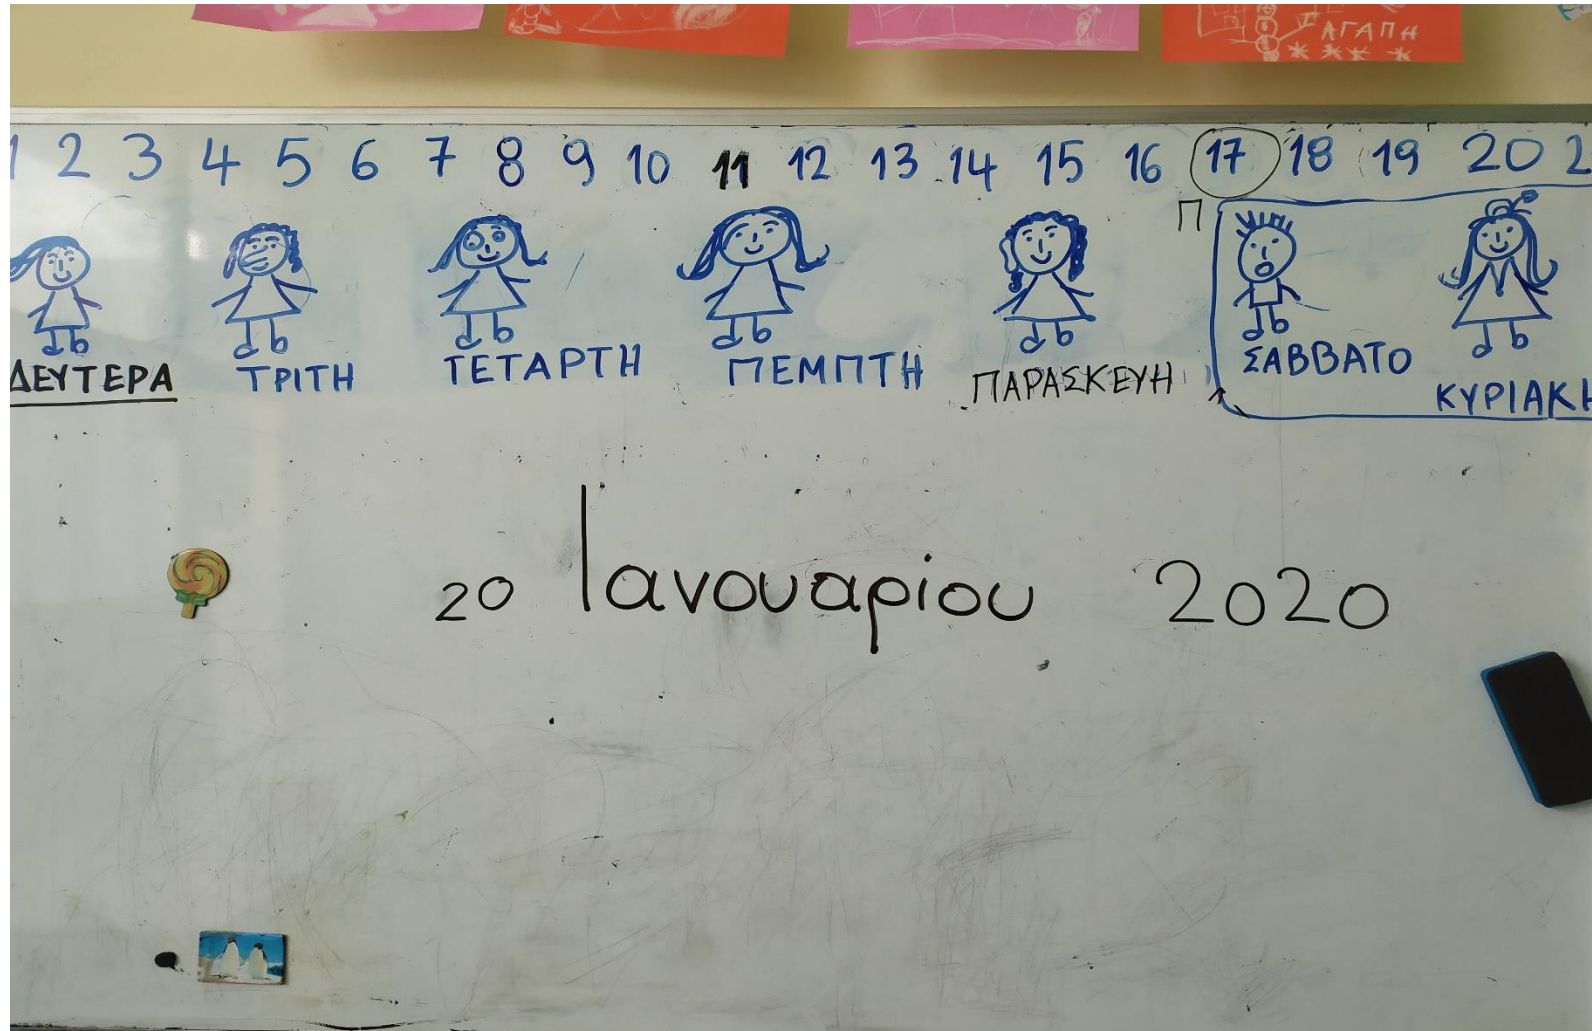 ΑΓΑΠΗ
1 2 3 4 5 6 7 8 9 10 11 12 13 14 15 16 17 18 19 20 2
Π
ΔΕΥΤΕΡΑ ΤΡΙΤΗ ΤΕΤΑΡΤΗ ΠΕΜΠΤΗ ΠΑΡΑΣΚΕΥΗ ΣΑΒΒΑΤΟ ΚΥΡΙΑΚΗ
20 Ιανουαρίου 2020